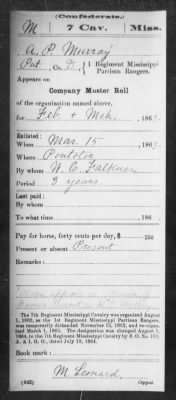 (Confederate.)
M 7 Cav. Miss.
A. P. Murray
Pvt, Co. D, 1 Regiment Mississippi
Partisan Rangers.
Appears on
Company Muster Roll
of the organization named above,
for Feb. & Mch., 1863.
Enlisted:
When Mar. 15, 186
Where Pontotoc
By whom W. C. Falkner
Period 3 years
Last paid:
By whom
To what time , 186 .
Pay for horse, forty cents per day, $
Present or absent Present
Remarks:
The 7th Regiment Mississippi Cavalry was organized August
1, 1862, as the 1st Regiment Mississippi Partisan Rangers,
was temporarily disbanded November 15, 1862, and re-organ-
ized March 1, 1863. The designation was changed August
1, 1864, to the 7th Regiment Mississippi Cavalry by S. O. No. 169,
A. & I. G. O., dated July 19, 1864.
Book mark:
M. Leonard
(642) Copyist.